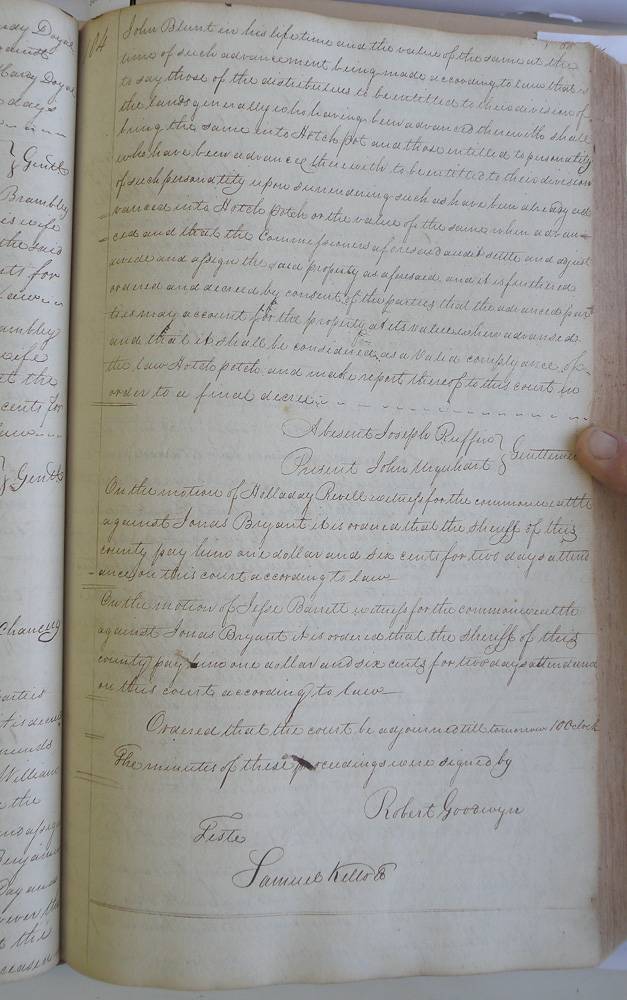 rdy Doyal
against
Hardy Doyal
days
} Gentle
Brambley
is wife
the said
nts for
law
ambley
wife
at the
cents for
law
} Gentle
Chancery
parties
William
the
Benjamin
Day and
ever the
the
104
John Blunt in his lifetime and the value of the same at the
time of such advancement being made according to law that is
to say those of the distributees to be entitled to their division of
the lands generally who having been advanced therewith shall
bring the same into Hotch pot and those intitled to personality
who have been advanced therewith to be entitled to their division
of such personality upon surrendering such as have been already ad
vanced into Hotch potch or the value of the same when advan=
=ced and that the Commissioners aforesaid audit settle and adjust
divide and assign the said property as aforesaid and it is further
ordered and decreed by consent of the parties that the advanced part
ties may account for the property at its value when advanced
and that it shall be considered as a valid complyance of
the law Hotch potch and make report thereof to this court in
order to a final decree
Absent Joseph Ruffin } Gentlemen
Present John Urquhart
On the motion of Holladay Revell witness for the commonwealth
against Jonas Bryant it is ordered that the sheriff of this
county pay him one dollar and six cents for two days attend
ance on this court according to law
On the motion of Jesse Barrett witness for the commonwealth
against Jonas Bryant it is ordered that the sheriff of this
county pay him one dollar and six cents for two days attendance
on this court according to law
Ordered that the court be adjourned till tomorrow 10 Oclock
The minutes of these proceedings were signed by
Robert Goodwyn
Teste
Samuel Kello